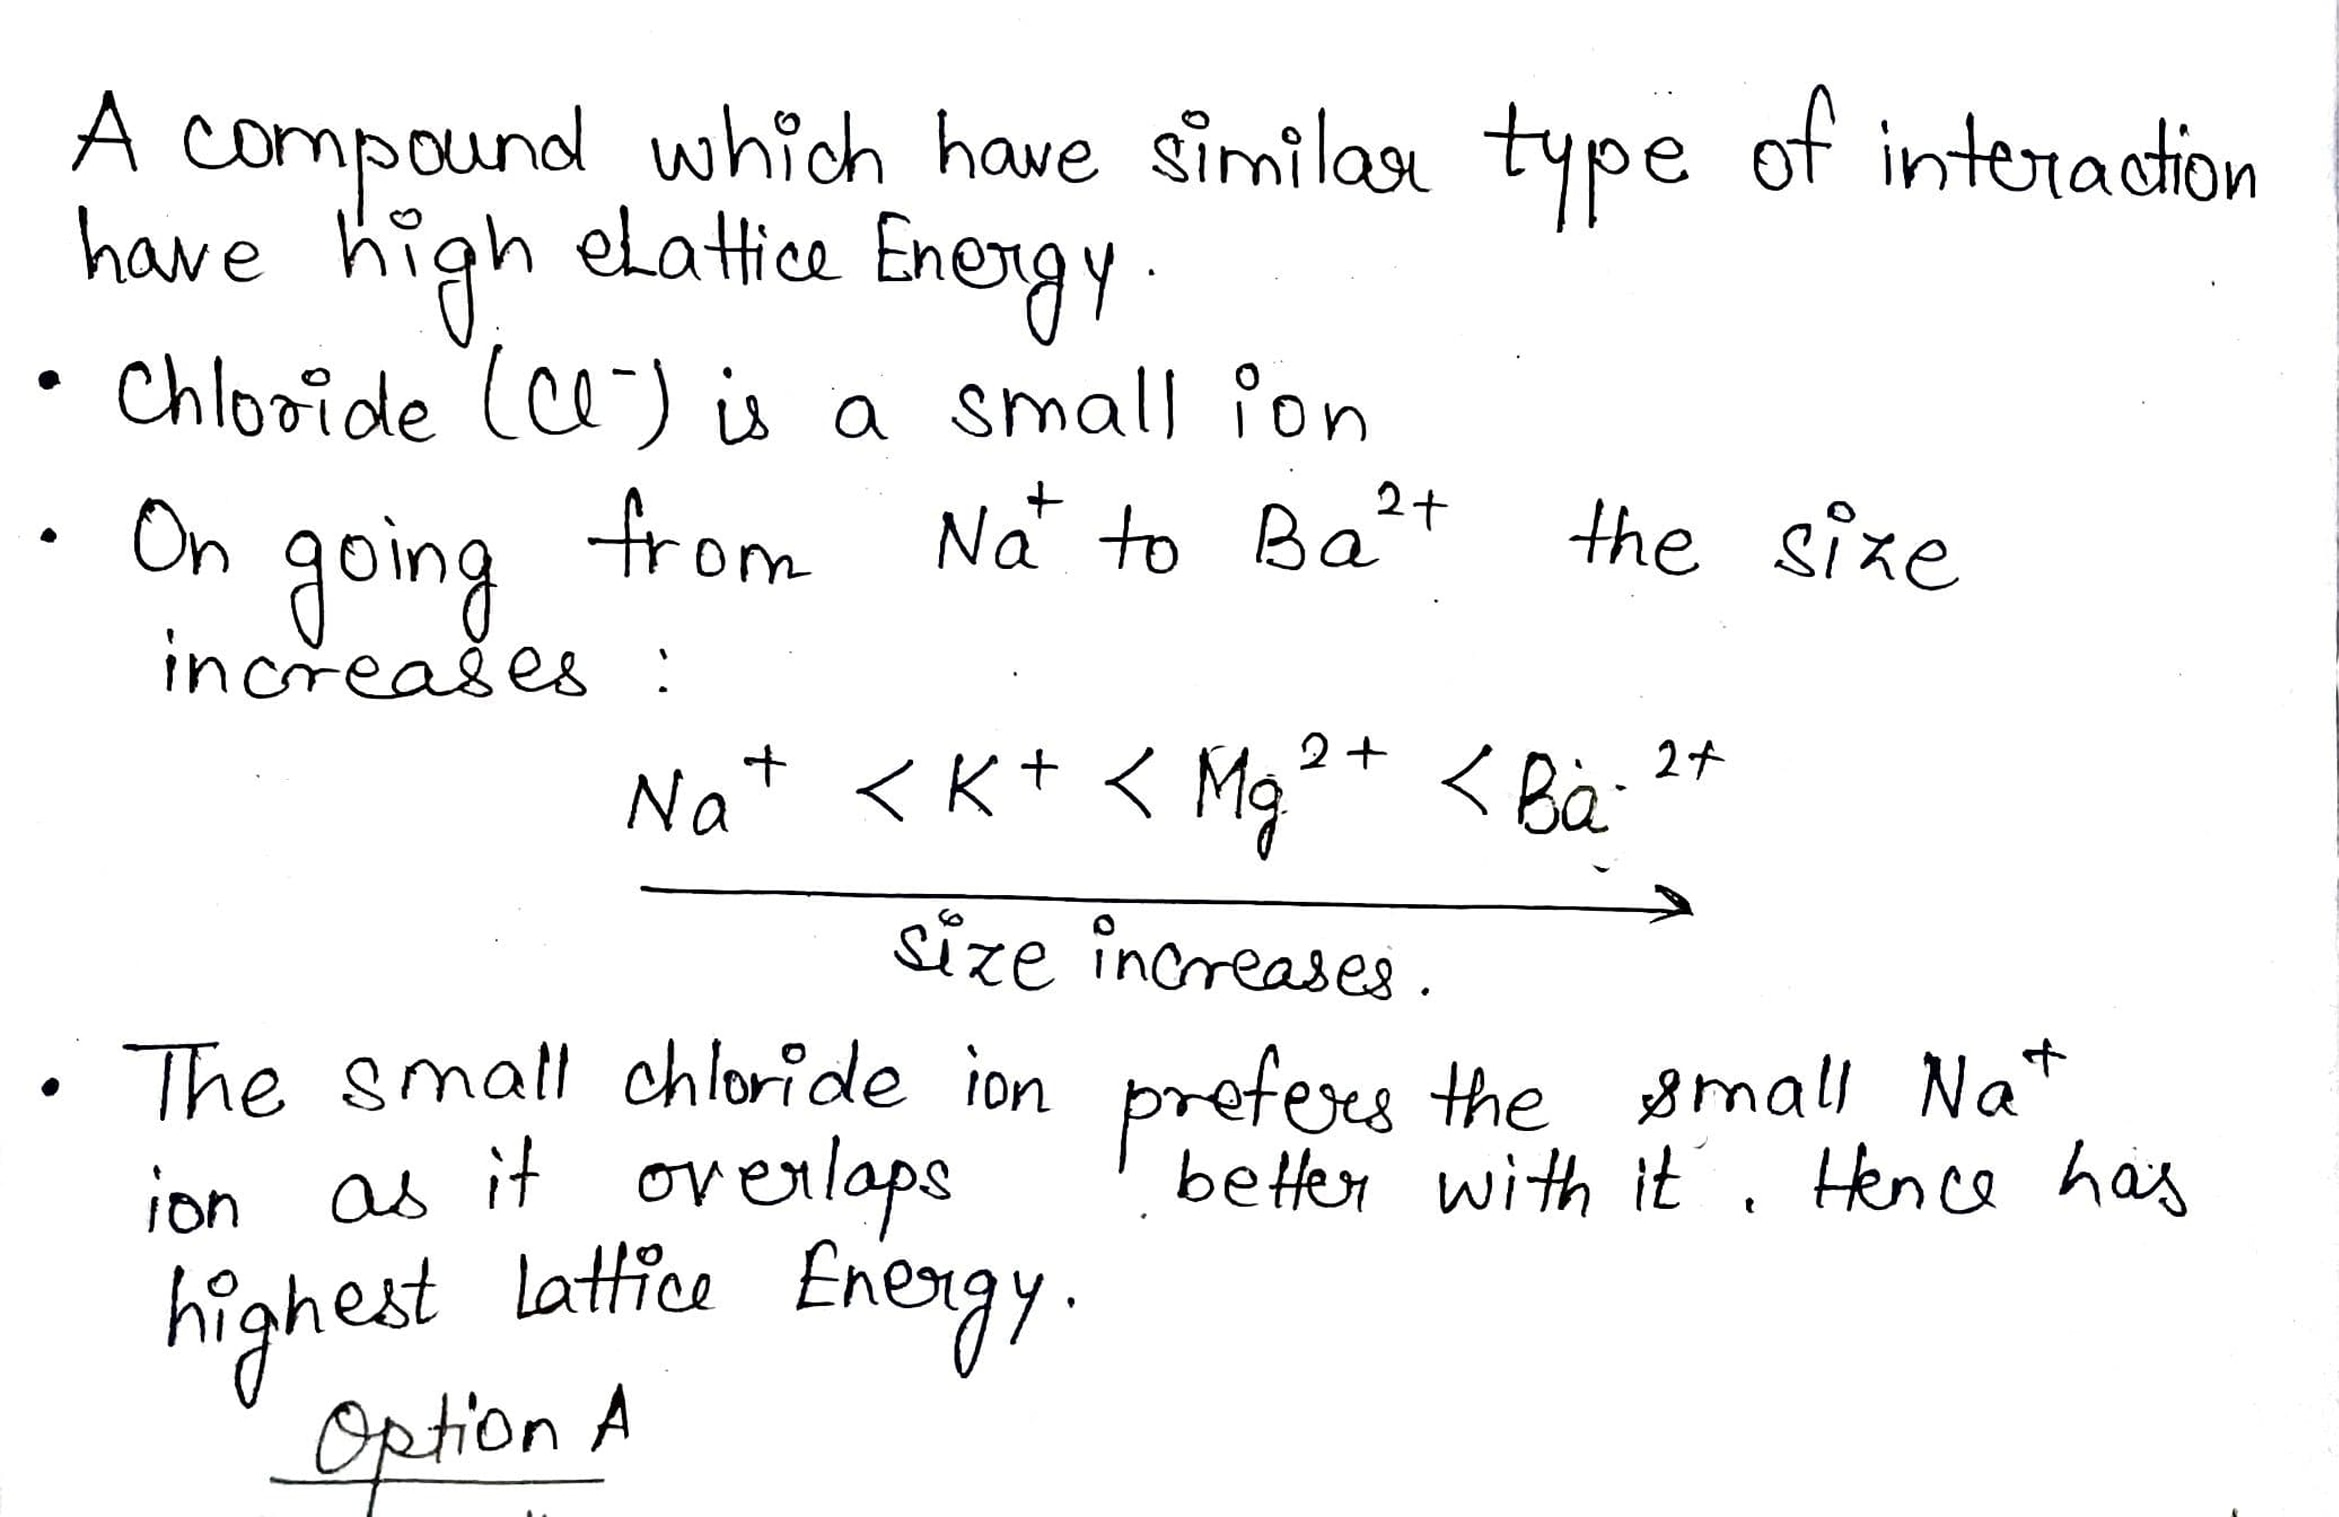 A compound which have similar type of interaction
have high eLattice Energy.
• Chloride (Cl⁻) is a small ion
• On going from Na⁺ to Ba²⁺ the size
increases :
Na⁺ < K⁺ < Mg²⁺ < Ba²⁺
size increases.
• The small chloride ion prefers the small Na⁺
ion as it overlaps better with it. Hence has
highest Lattice Energy.
Option A